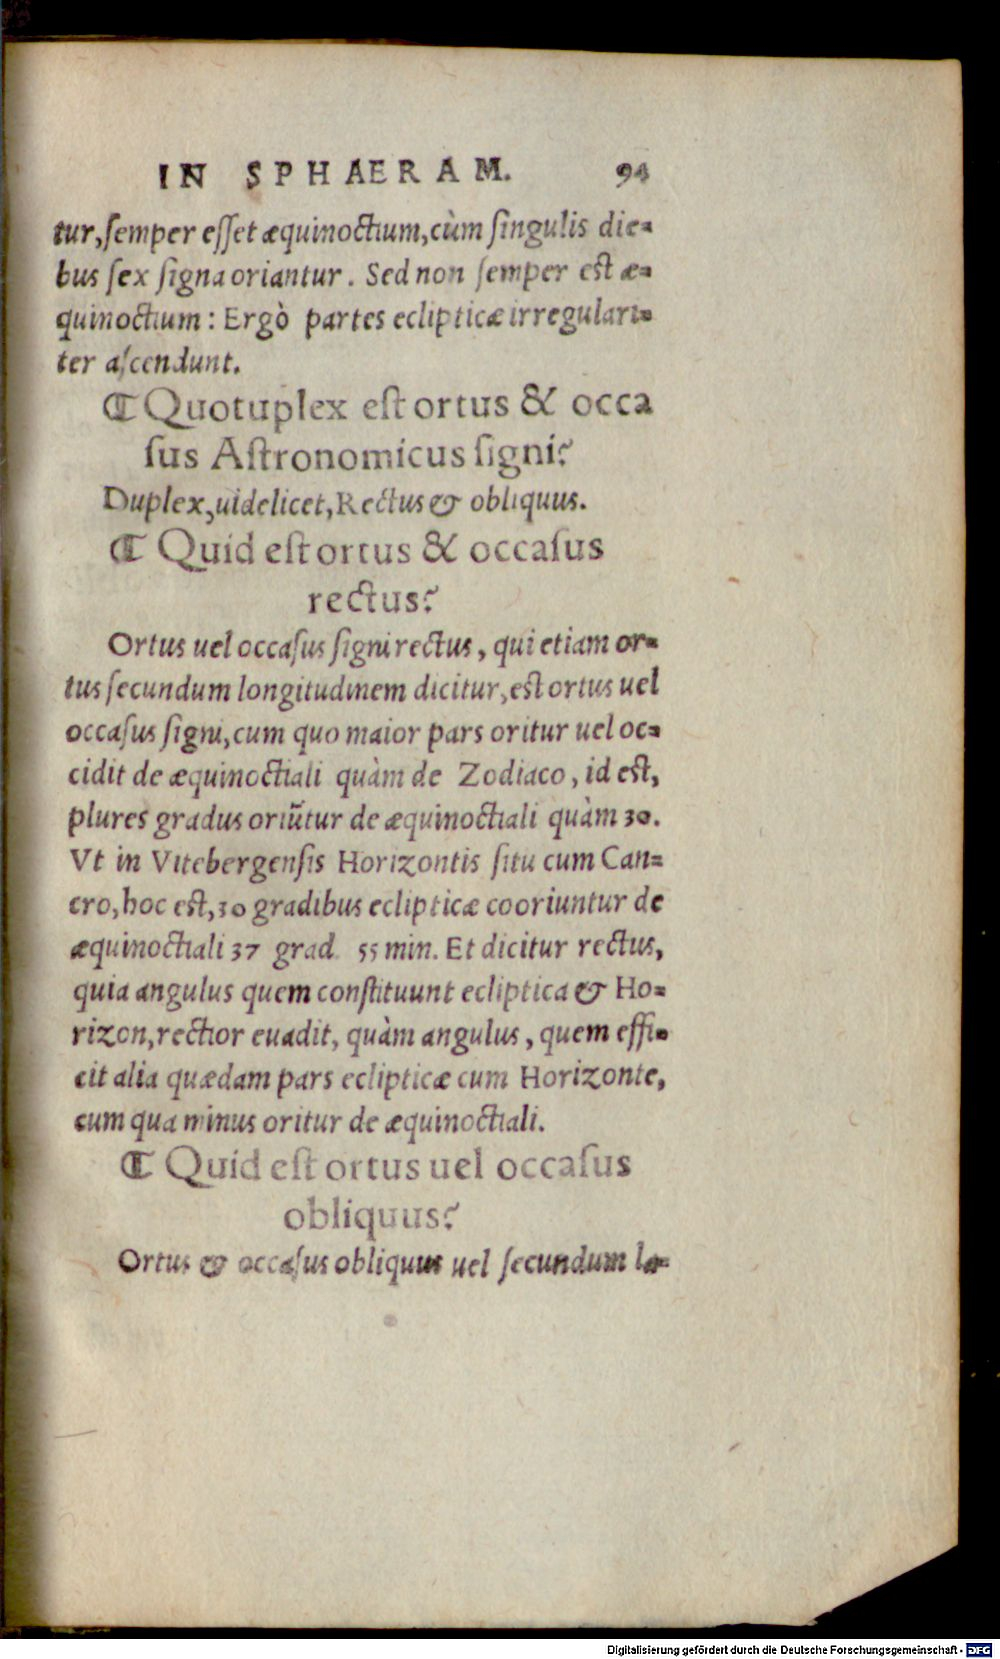 IN SPHAERAM. 94
tur, semper esset æquinoctium, cùm singulis die-
bus sex signa oriantur. Sed non semper est æ-
quinoctium: Ergò partes eclipticæ irregulari-
ter ascendunt.
¶ Quotuplex est ortus & occa
sus Astronomicus signi?
Duplex, uidelicet, Rectus & obliquus.
¶ Quid est ortus & occasus
rectus?
Ortus uel occasus signi rectus, qui etiam or-
tus secundum longitudinem dicitur, est ortus uel
occasus signi, cum quo maior pars oritur uel oc-
cidit de æquinoctiali quàm de Zodiaco, id est,
plures gradus oriũtur de æquinoctiali quàm 30.
Vt in Vitebergensis Horizontis situ cum Can-
cro, hoc est, 30 gradibus eclipticæ cooriuntur de
æquinoctiali 37 grad. 55 min. Et dicitur rectus,
quia angulus quem constituunt ecliptica & Ho-
rizon, rectior euadit, quàm angulus, quem effi-
cit alia quædam pars eclipticæ cum Horizonte,
cum qua minus oritur de æquinoctiali.
¶ Quid est ortus uel occasus
obliquus?
Ortus & occasus obliquus uel secundum la-
Digitalisierung gefördert durch die Deutsche Forschungsgemeinschaft - DFG